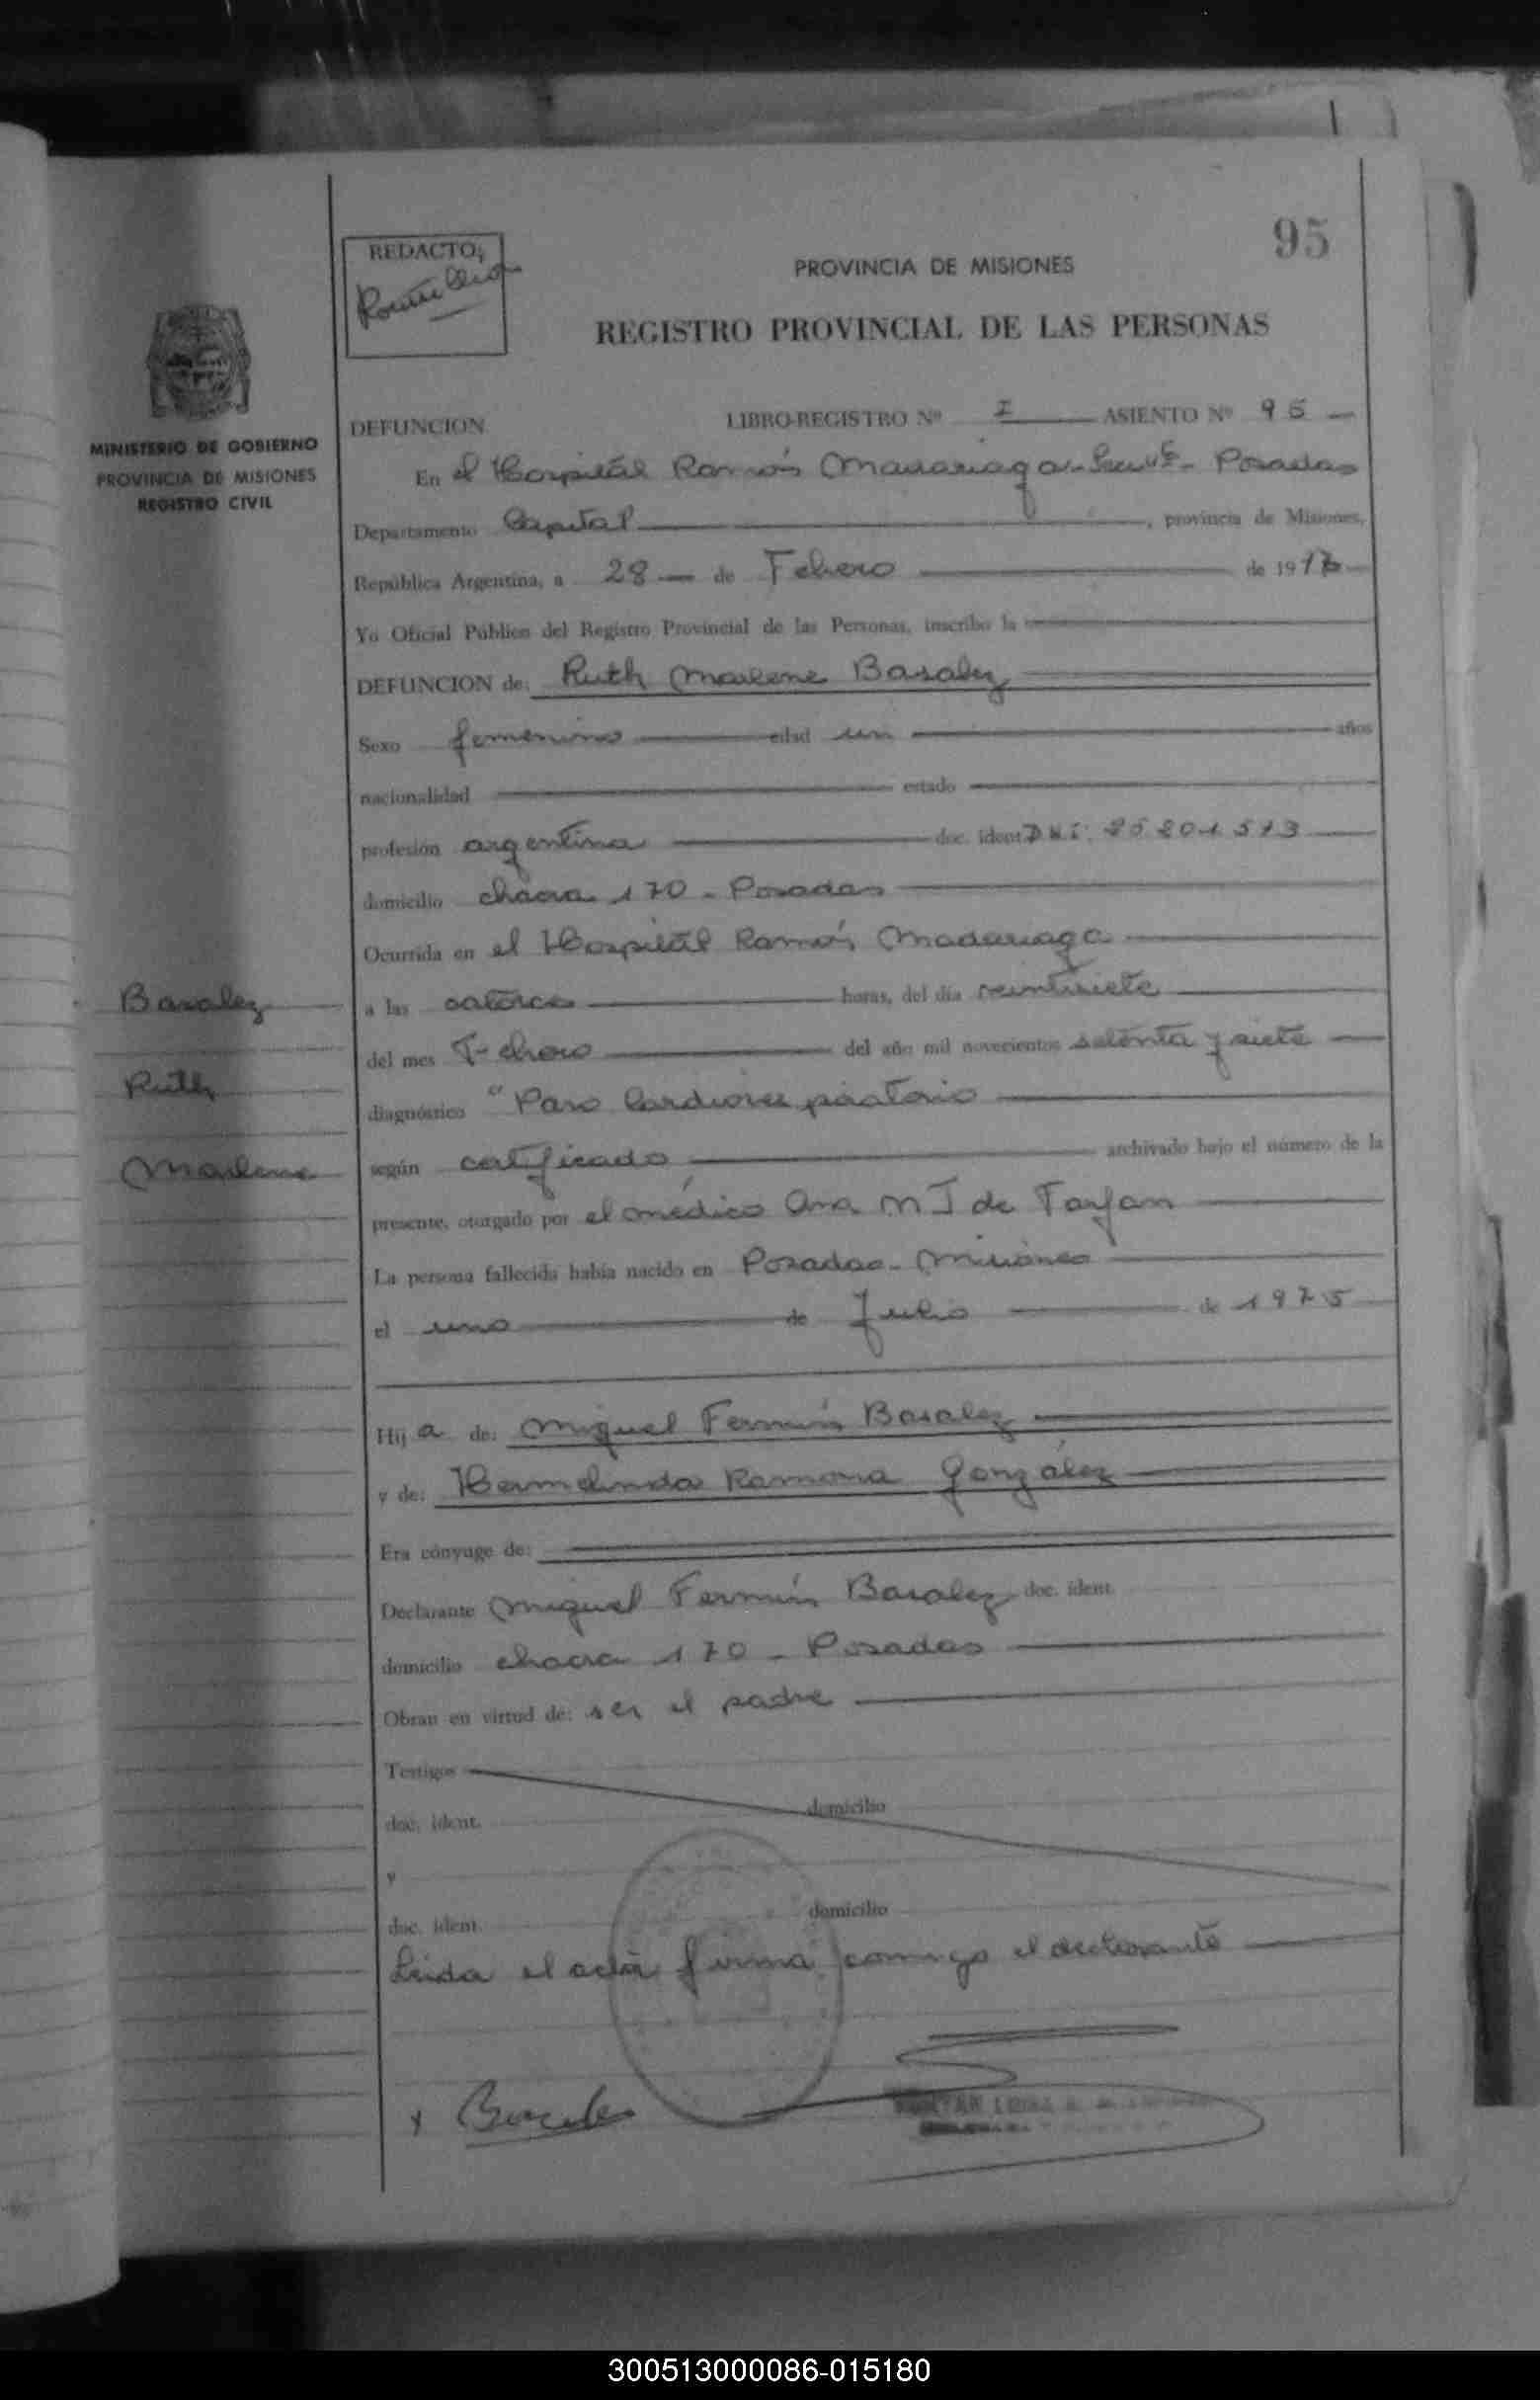 95
REDACTO:
PROVINCIA DE MISIONES
REGISTRO PROVINCIAL DE LAS PERSONAS
MINISTERIO DE GOBIERNO
PROVINCIA DE MISIONES
REGISTRO CIVIL
DEFUNCION LIBRO-REGISTRO Nº I ASIENTO Nº 95
En el Hospital Ramón Madariaga Posadas
Departamento Capital, provincia de Misiones,
República Argentina, a 28 de Febrero de 19
Yo Oficial Público del Registro Provincial de las Personas, inscribo la
DEFUNCION de: Ruth Marlene Basalez
Sexo femenino edad un años
nacionalidad estado
profesión argentina doc. ident. DNI: 25 201 573
domicilio chacra 170 - Posadas
Ocurrida en el Hospital Ramón Madariaga
Basalez
a las catorce horas, del día veintisiete
del mes Febrero del año mil novecientos setenta y siete
Ruth
diagnóstico "Paro Cardiorespiratorio
Marlene
según certificado archivado bajo el número de la
presente, otorgado por el médico Ana M J de Farfan
La persona fallecida había nacido en Posadas - Misiones
el uno de Julio de 1975
Hij a de: Miguel Fermín Basalez
y de: Hermelinda Ramona González
Era cónyuge de:
Declarante Miguel Fermín Basalez doc. ident.
domicilio chacra 170 - Posadas
Obran en virtud de: ser el padre
Testigos
doc. ident. domicilio
y
doc. ident. domicilio
Leida el acta firma conmigo el declarante
x
300513000086-015180